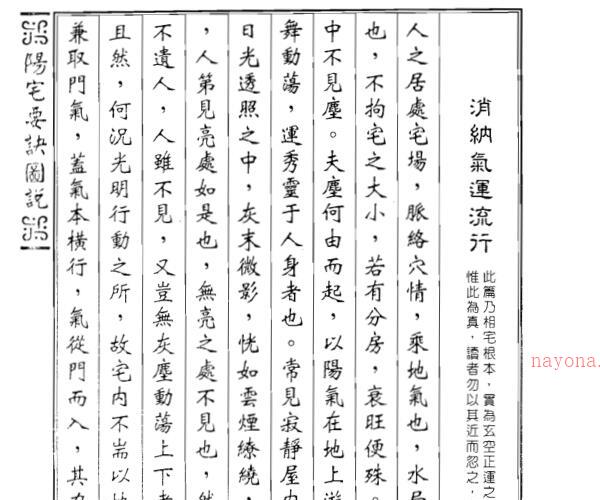 消納氣運流行
此篇乃相宅根本，實為玄空正運之
惟此為真，讀者勿以其近而忽之，
人之居處宅場，脈絡穴情，乘地氣也，水局
也，不拘宅之大小，若有分房，衰旺便殊。
中不見塵。夫塵何由而起，以陽氣在地上游
舞動蕩，運秀靈于人身者也。常見寂靜屋中
日光透照之中，灰末微影，恍如雲煙繚繞，
，人第見亮處如是也，無亮之處不見也，然
不遺人，人雖不見，又豈無灰塵動蕩上下者
且然，何況光明行動之所，故宅內不耑以地
兼取門氣，蓋氣本橫行，氣從門而入，其力
陽宅要訣圖說
nayona.